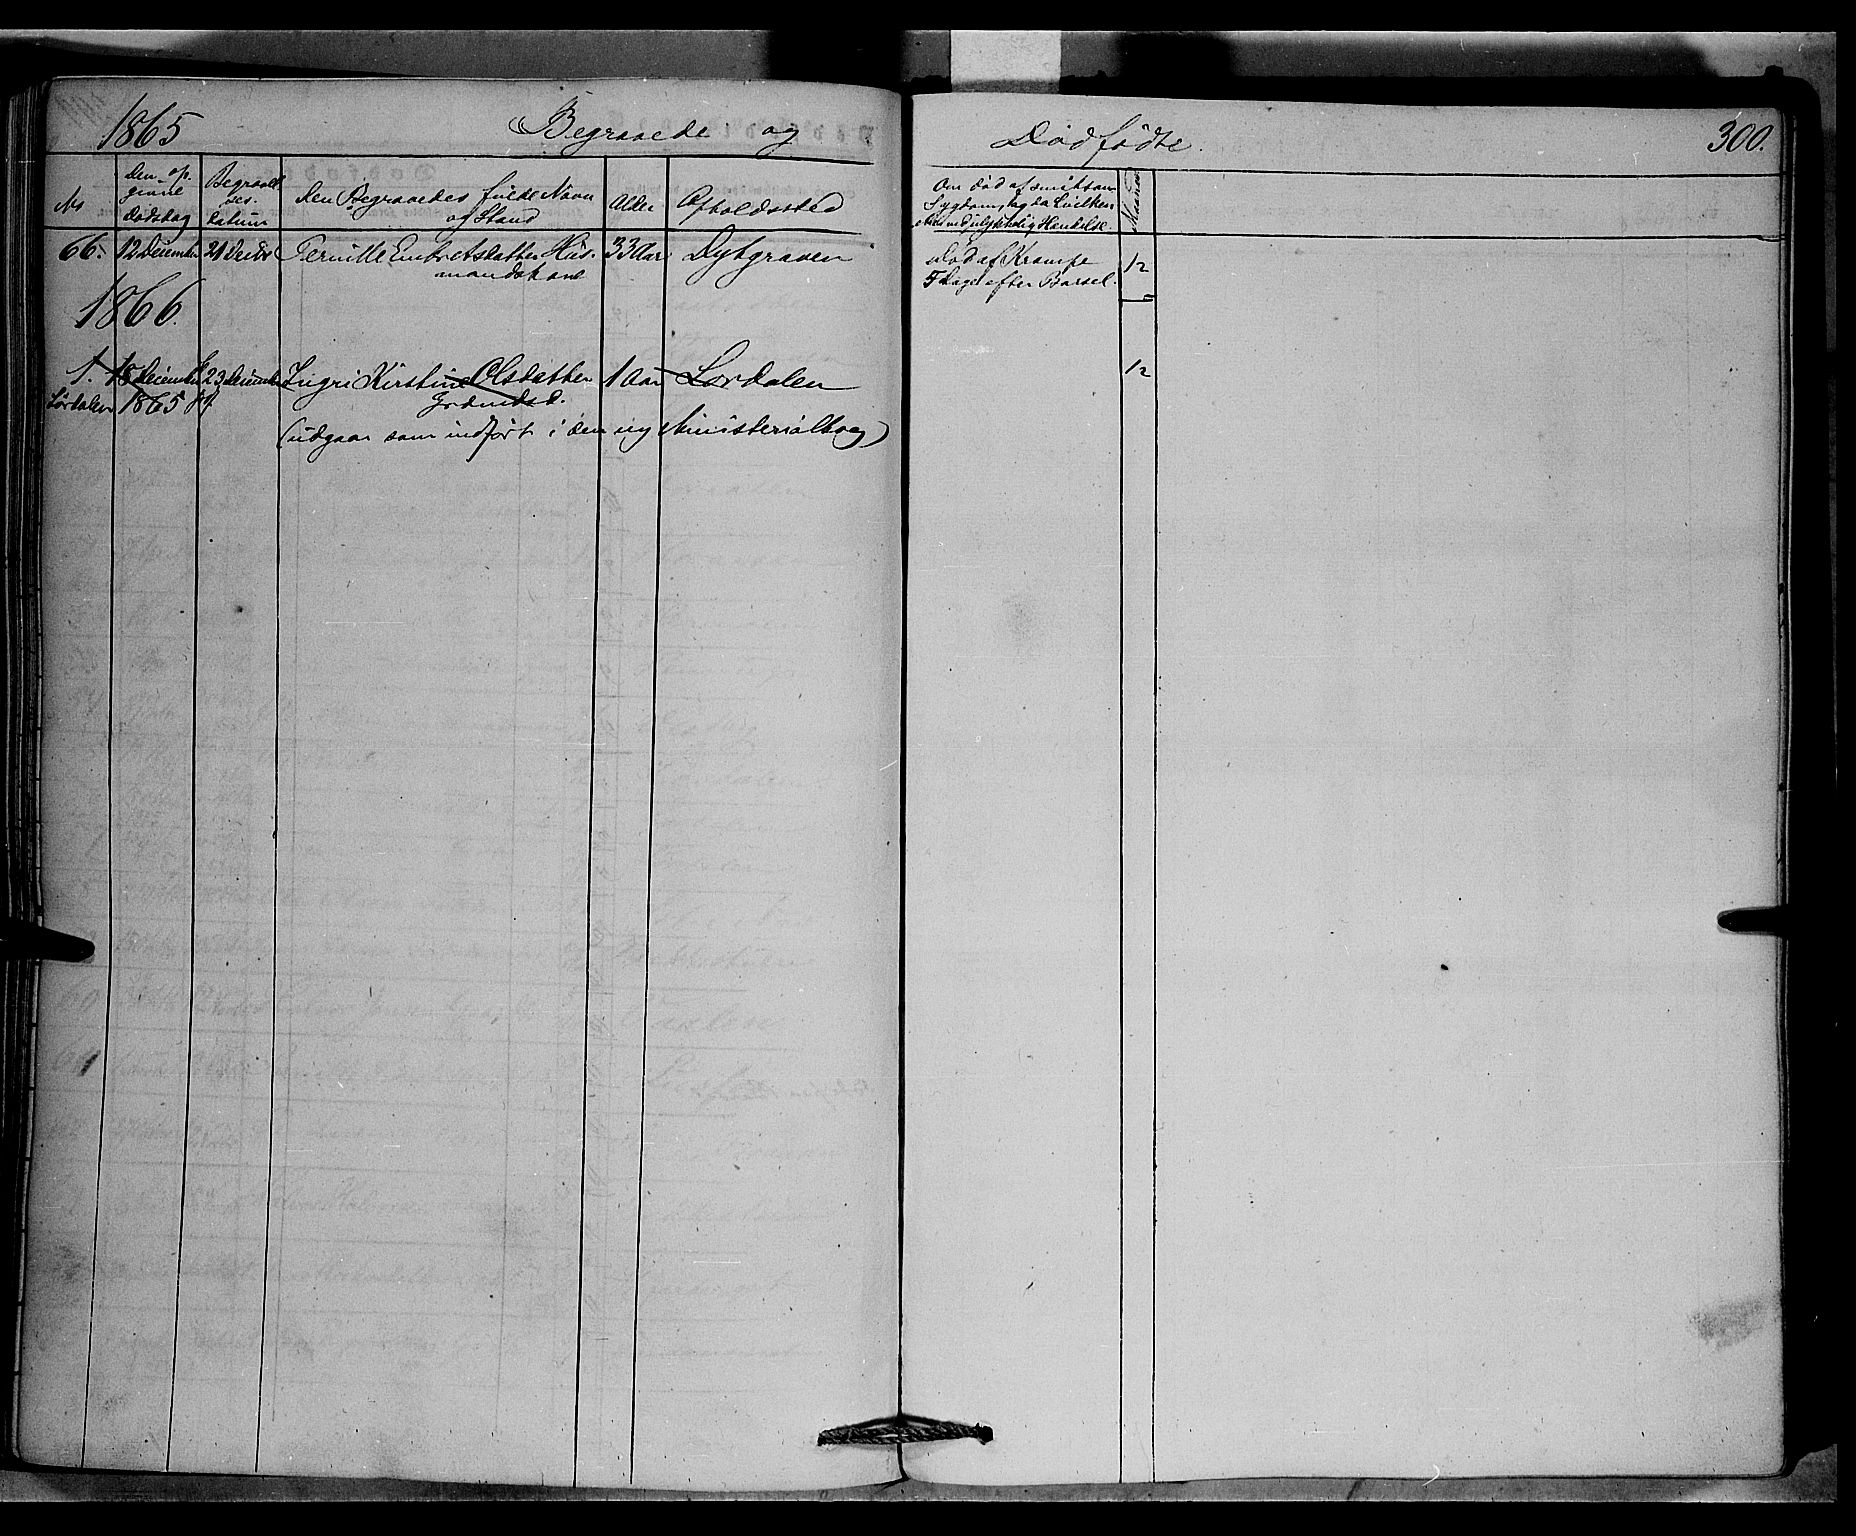 1865 Begravede og Dødfødte. 300.
No
Den opgivne Dødsdag
Begravelses-datum
Den Begravedes fulde Navn og Stand
Alder
Opholdssted
Om død af smitsom
Sygdom, og da hvilken
eller ved ulykkelig Hændelse.
66. 12 December 21 Decbr Pernille Embretsdatter Hus- 33 Aar Dybgraven Død af Krampe 12
mandskone 5 Dage efter Barsel.
1866.
1. 15 December 23 December Ingri Kirstine Olsdatter 1 Aar Lordalen 12
Lordalen 1865
(udgaar som indført i den ny Ministerialbog)